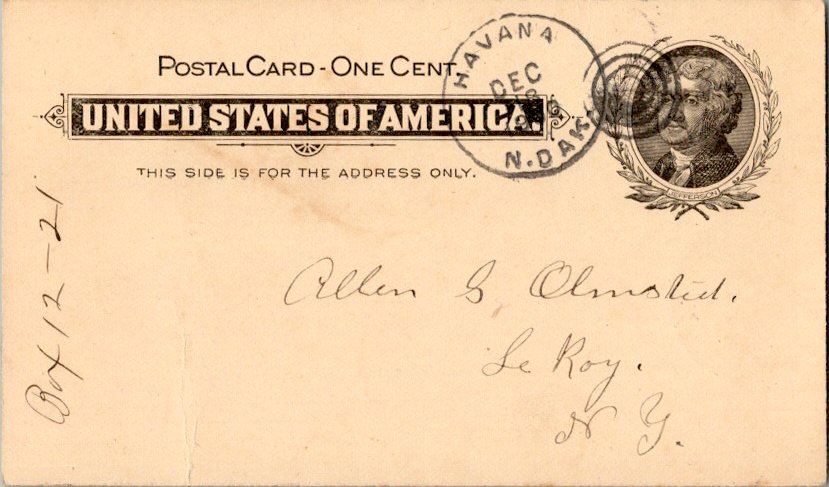 POSTAL CARD - ONE CENT.
UNITED STATES OF AMERICA.
THIS SIDE IS FOR THE ADDRESS ONLY.
HAVANA
DEC
N. DAK.
JEFFERSON
Allen G Olmsted.
Le Roy.
N Y.
Box 12-21